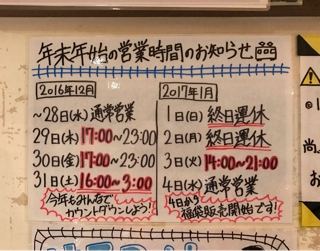 年末年始の営業時間のお知らせ
2016年12月
~28日(水)通常営業
29日(木)17:00~23:00
30日(金)17:00~23:00
31日(土)16:00~3:00
今年もみんなで
カウントダウンしよう!
2017年1月
1日(日)終日運休
2日(月)終日運休
3日(火)14:00~21:00
4日(水)通常営業
4日から
福袋販売開始です!